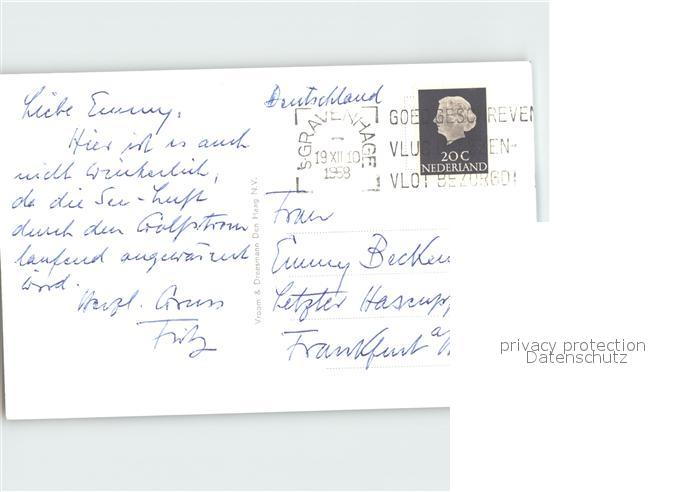 Liebe Emmy,
Hier ist es auch
nicht winterlich,
da die See-Luft
durch den Golfstrom
laufend angewärmt
wird.
Herzl. Gruss
Fritz
Vroom & Dreesmann Den Haag N.V.
Deutschland
'S-GRAVENHAGE
19 XII 10
1958
GOED GESCHREVEN
VLOT BEZORGD!
20 C
NEDERLAND
Frau
Emmy Becken
Letzter Hasenp
Frankfurt a/
privacy protection
Datenschutz